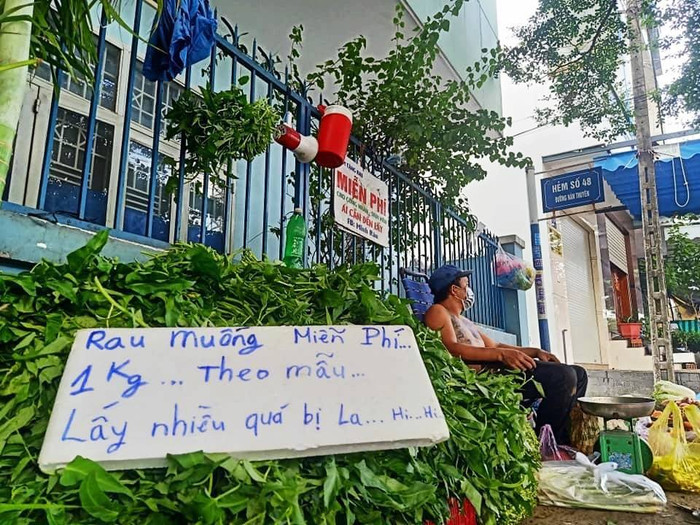 Rau muống Miễn Phí...
1 Kg... Theo mẫu...
Lấy nhiều quá bị La... Hi...Hi
MIỄN PHÍ
AI CẦN ĐẾN LẤY
HẺM SỐ 48
ĐƯỜNG